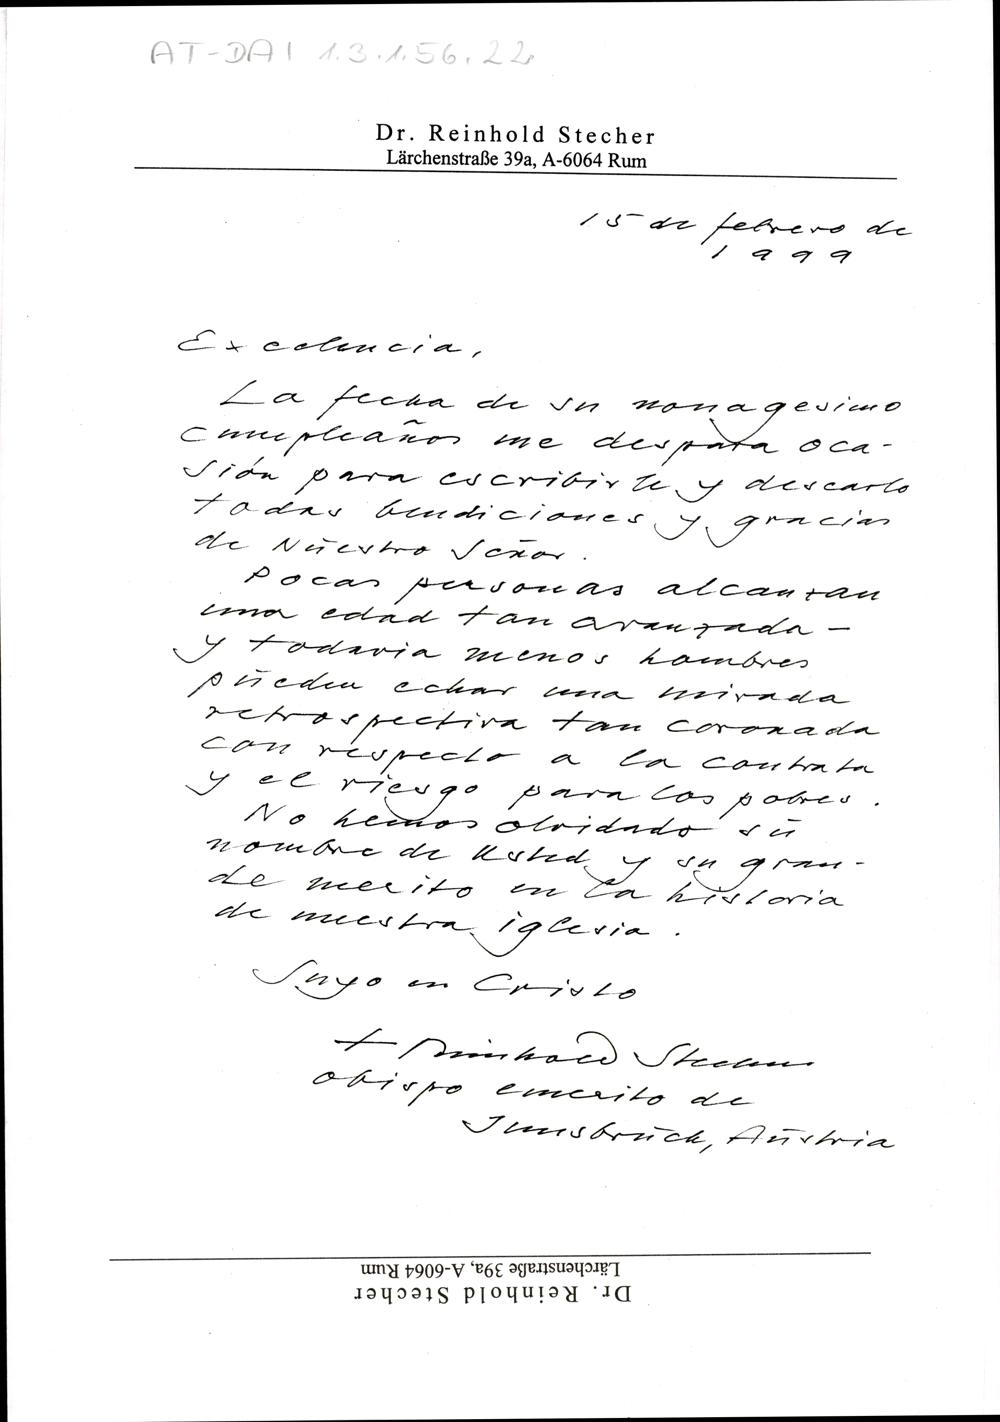 AT-DAI 1.3.1.56.22
Dr. Reinhold Stecher
Lärchenstraße 39a, A-6064 Rum
15 de febrero de
1999
Excelencia,
La fecha de su nonagesimo
cumpleaños me despara oca-
sión para escribirle y desearlo
todas bendiciones y gracias
de Nuestro Señor.
Pocas personas alcanzan
una edad tan avanzada –
y todavia menos hombres
pueden echar una mirada
retrospectiva tan coronada
con respecto a la contrata
y el riesgo para los pobres.
No hemos olvidado su
nombre de Usted y su gran-
de merito en la historia
de nuestra iglesia.
Suyo en Cristo
+ Reinhold Stecher
obispo emerito de
Innsbruck, Austria
Lärchenstraße 39a, A-6064 Rum
Dr. Reinhold Stecher